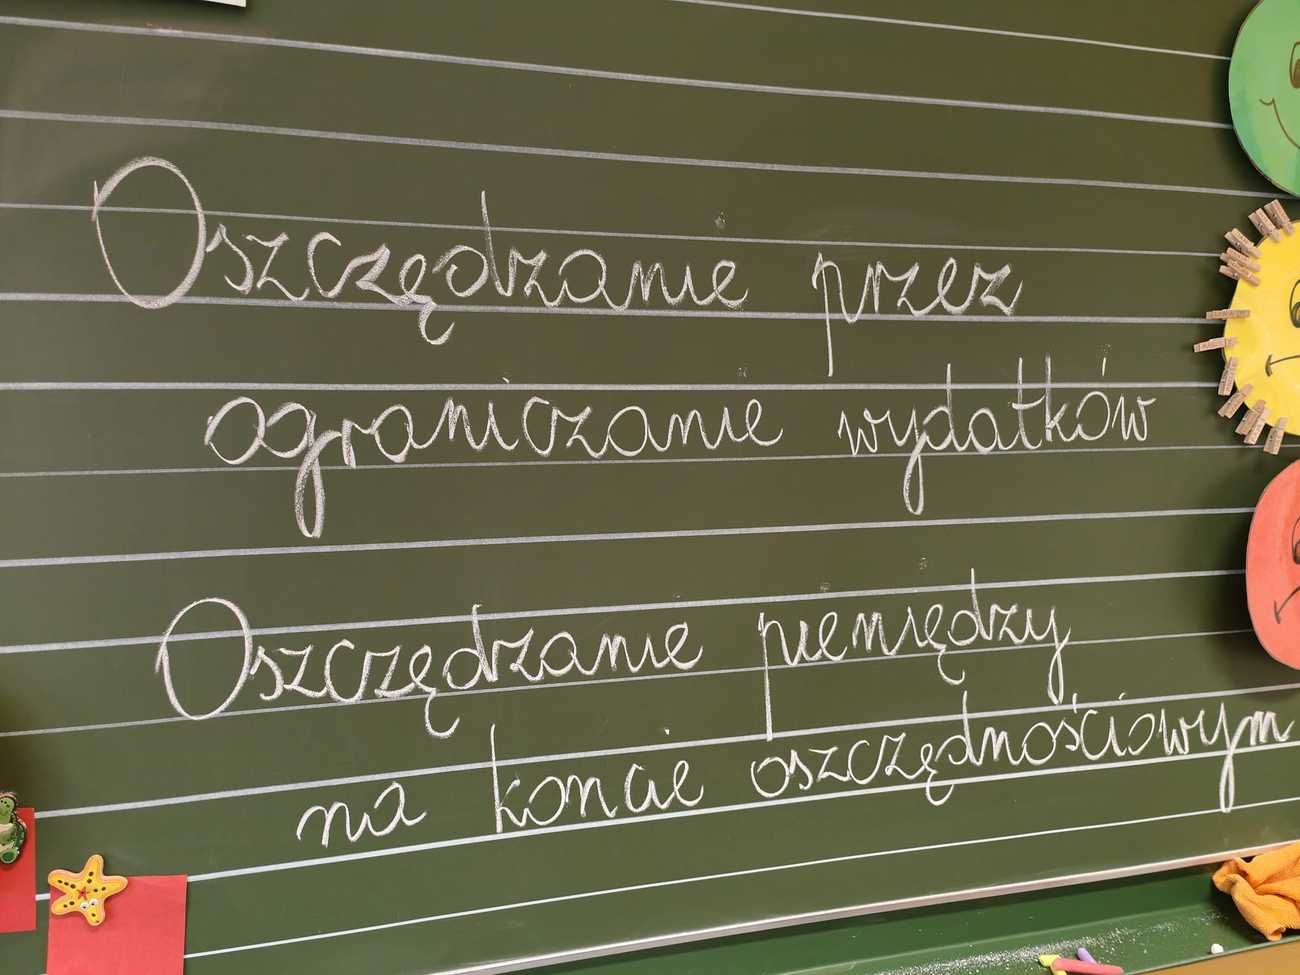 Oszczędzanie przez
ograniczanie wydatków
Oszczędzanie pieniędzy
na koncie oszczędnościowym